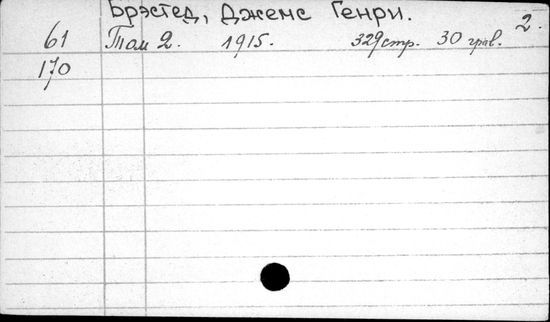 Брэстед, Джемс Генри.
2.
61 Том 2. 1915. 329 стр. 30 грав.
170